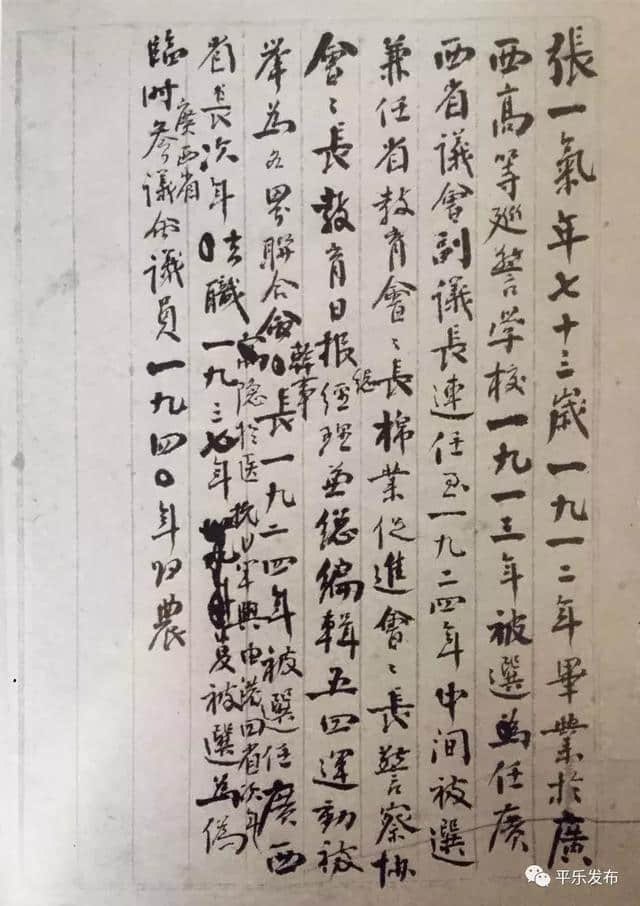 張一氣年七十三歲一九一二年畢業於廣
西高等巡警学校一九一三年被選為任廣
西省議會副議長連任至一九二四年中间被選
兼任省教育會〻長棉業促進會〻長警察协
會〻長教育日报總经理兼總编輯五四運動被
举為各界联合會幹事長一九二四年被選任廣西
省長次年去職
隐於医抗日军兴由港回省次年
一九三七年
被選為偽
廣西省
臨时参議会議員一九四〇年归農
平乐发布